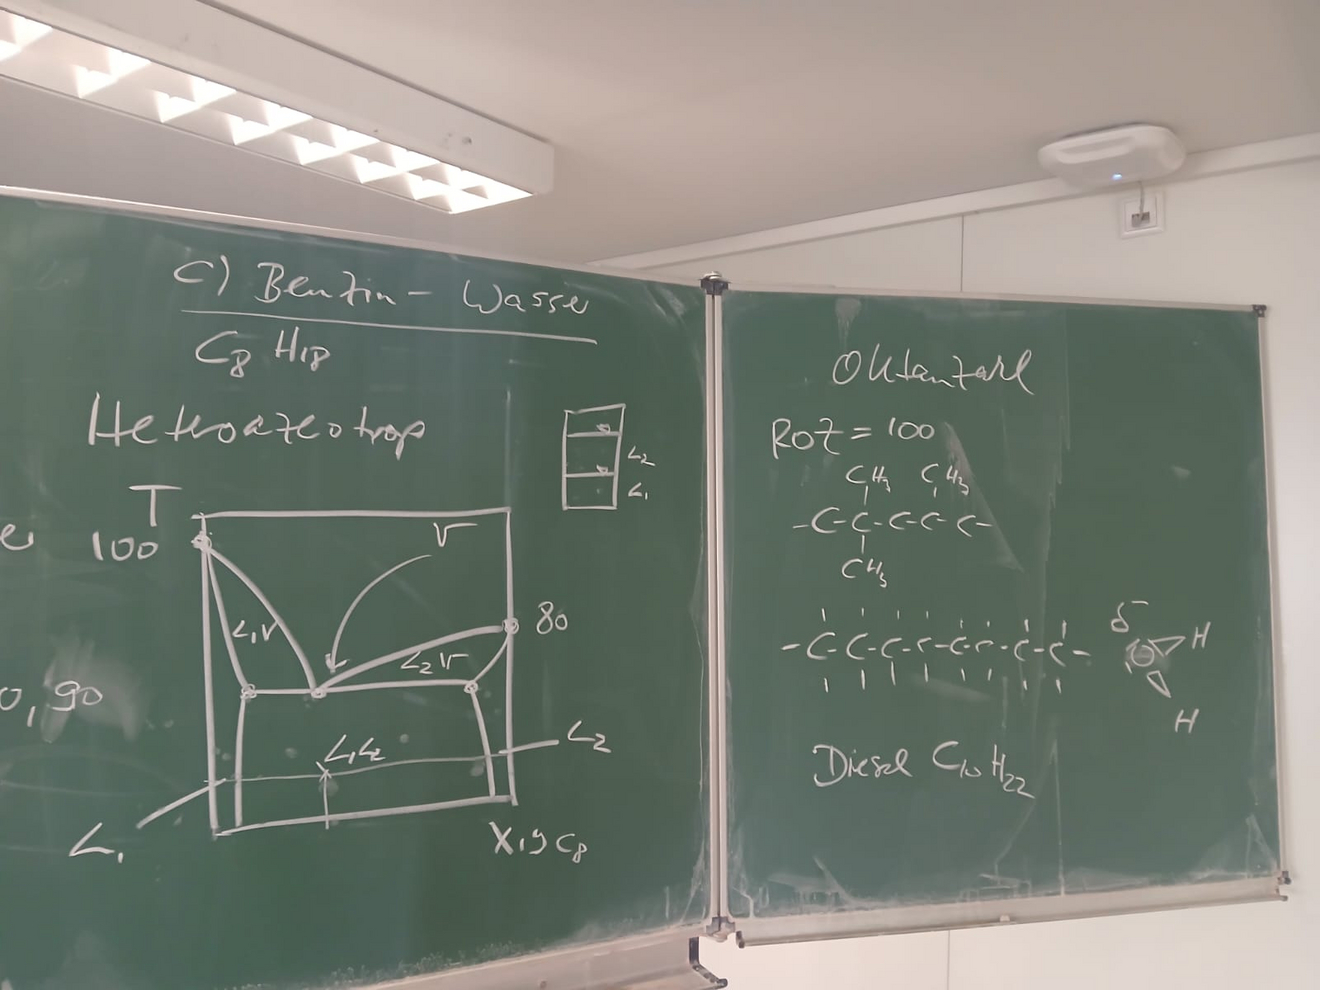 C) Benzin - Wasser
C8 H18
Heteroazeotrop
T
100
V
80
L1V
L2V
0,90
L1L2
L2
L1
X1y C8
L2
L1
Oktanzahl
ROZ = 100
CH3 CH3
-C-C-C-C-C-
CH3
-C-C-C-C-C-C-C-C-
δ-
H
H
Diesel C10 H22